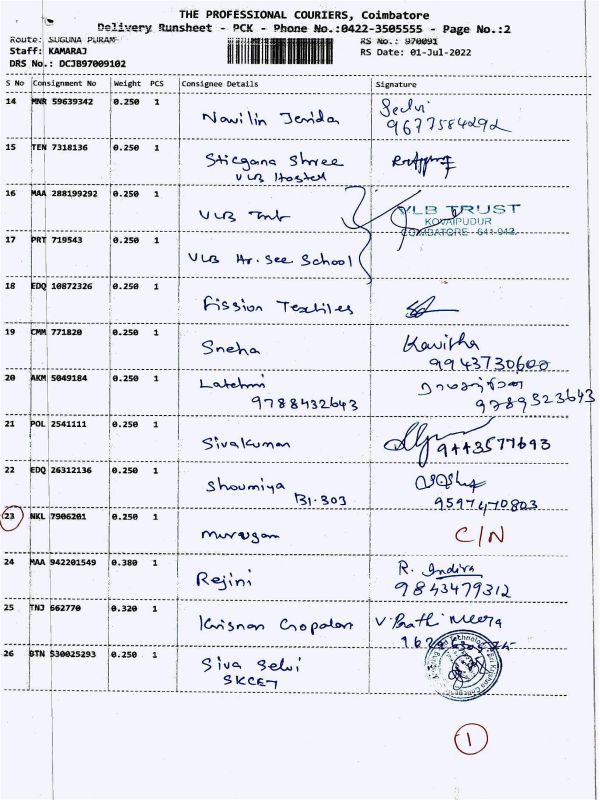 THE PROFESSIONAL COURIERS, Coimbatore
Delivery Runsheet - PCK - Phone No.:0422-3505555 - Page No.:2
Route: SUGUNA PURAM
RS No.: 970091
Staff: KAMARAJ
RS Date: 01-Jul-2022
DRS No.: DCJB97009102
S No Consignment No Weight PCS Consignee Details Signature
14 MNR 59639342 0.250 1 Navilin Jenida Selvi
9677584292
15 TEN 7318136 0.250 1 Sticgana Shree
VLB Hostel
16 MAA 288199292 0.250 1 VLB Trust
VLB TRUST
KOVAIPUDUR
COIMBATORE - 641 042.
17 PRT 719543 0.250 1 VLB Hr. See School
18 EDQ 10872326 0.250 1 Fission Textiles
19 CMM 771820 0.250 1 Sneha Kavitha
9943730600
20 AKM 5049184 0.250 1 Latehmi
9788432643 9789323643
21 POL 2541111 0.250 1 Sivakuman 9443577693
22 EDQ 26312136 0.250 1 Shoumiya
B1-303 9597470803
23 NKL 7906201 0.250 1 murugam C/N
24 MAA 942201549 0.380 1 Rejini R. Indira
9843479312
25 TNJ 662770 0.320 1 Krisnan Gopalan V. Prathi Meera
26 BTN 530025293 0.250 1 Siva Selvi
SKCET
1